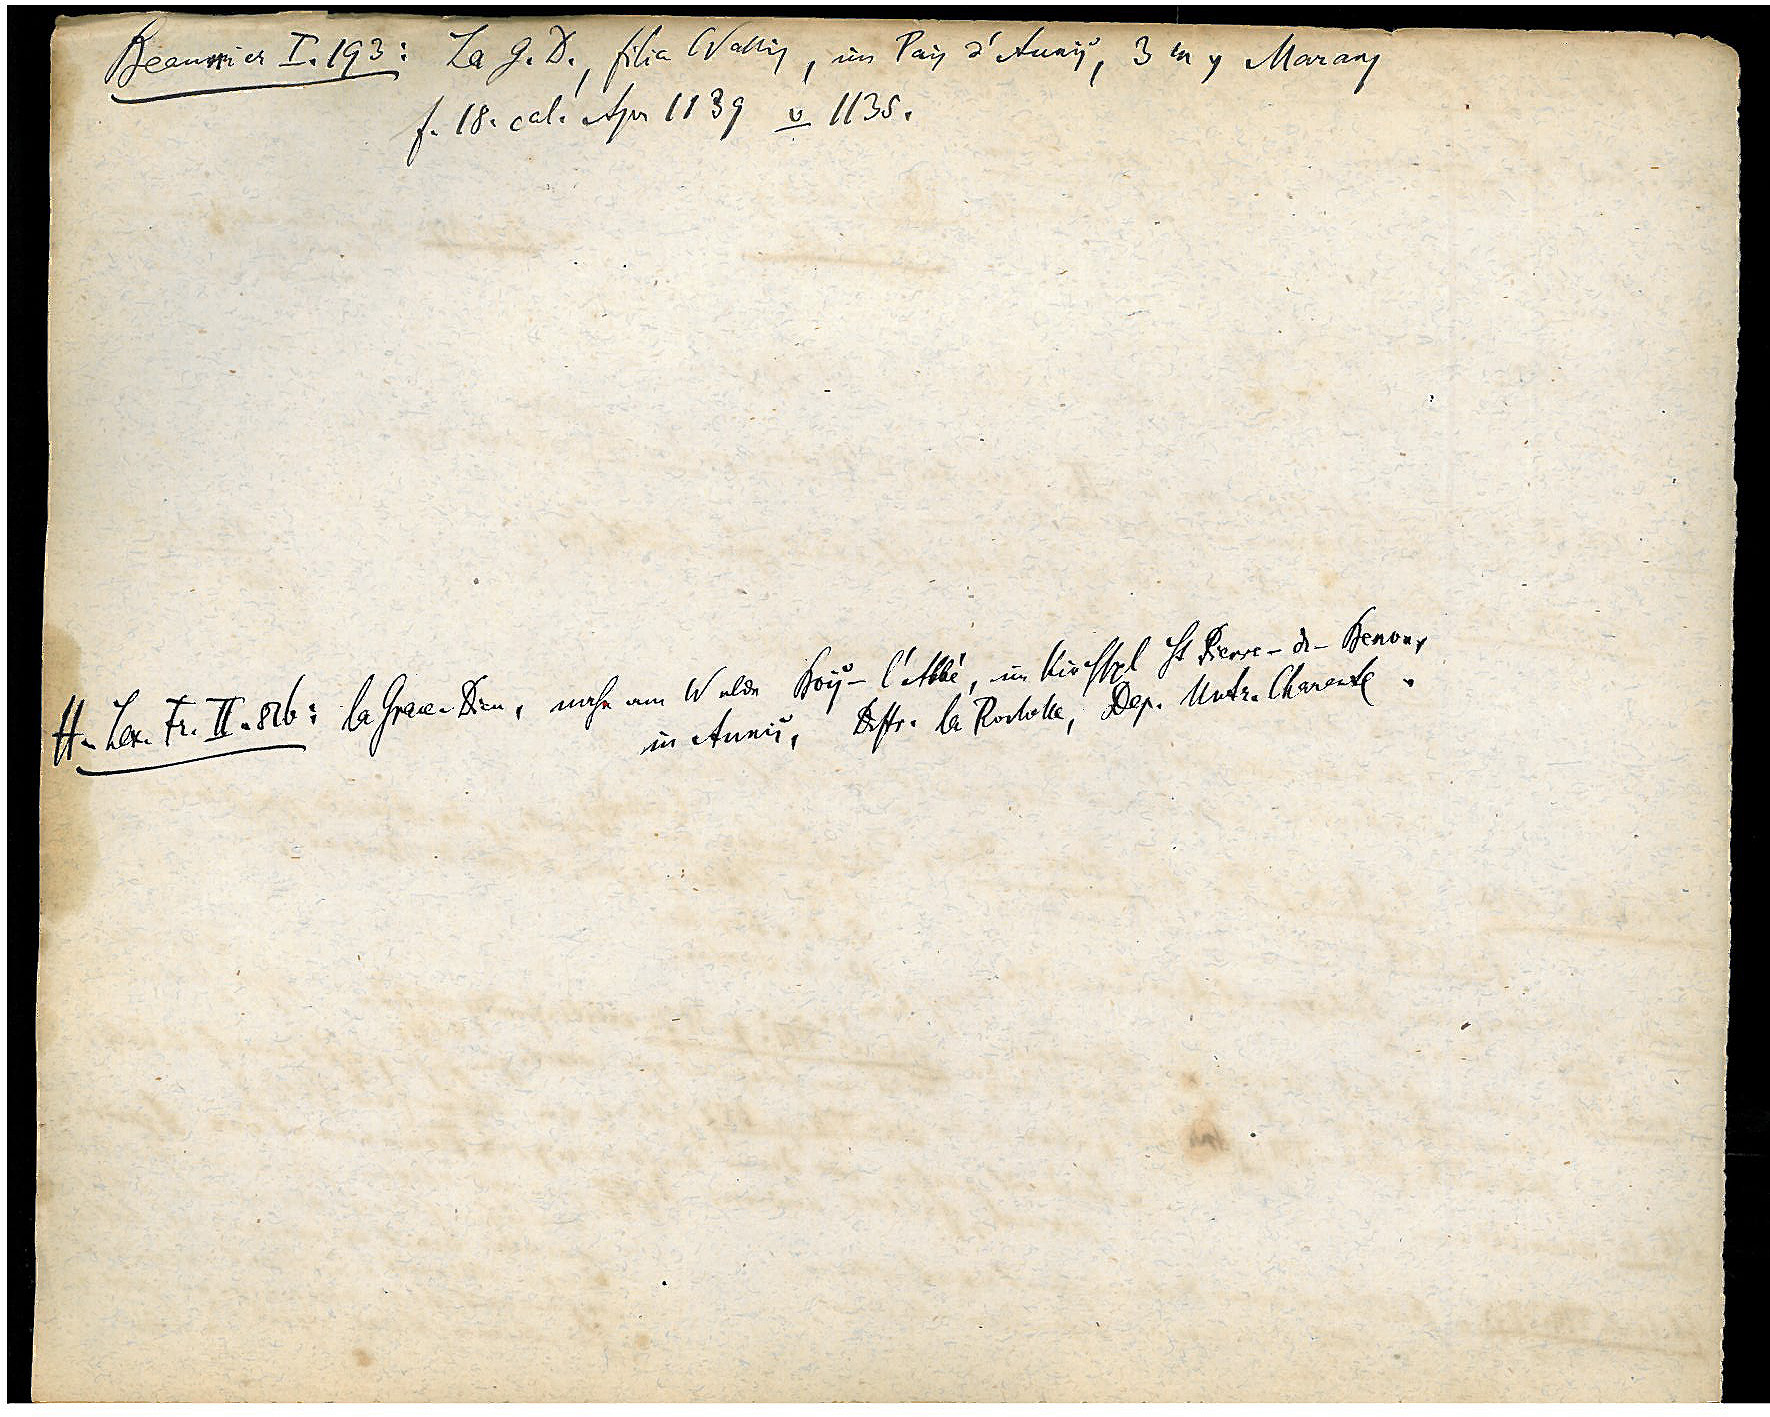 Beaunier I. 193: La G. D., filia Vallis, im Pays d'Aunis, 3 m v Marans
f. 18. cal. Apr 1139 v 1135.
H. Lex. Fr. II. 826: la Grace-Dieu, nahe am Walde Bois-l'Abbé, im Kirchspl St Pierre-de-Benon,
in Aunis, Distr. la Rochelle, Dep. Untr. Charente.